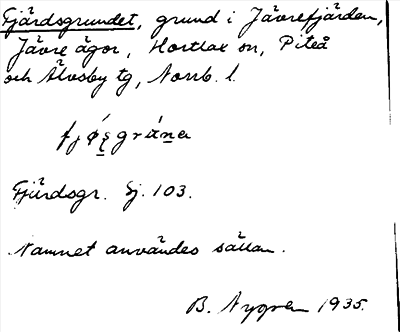 Fjärdsgrundet, grund i Jävrefjärden,
Jävre ägor, Hortlax sn, Piteå
och Älvsby tg, Norrb. l.
Fjärdsgr. Sj. 103.
Namnet användes sällan.
B. Nygren 1935.